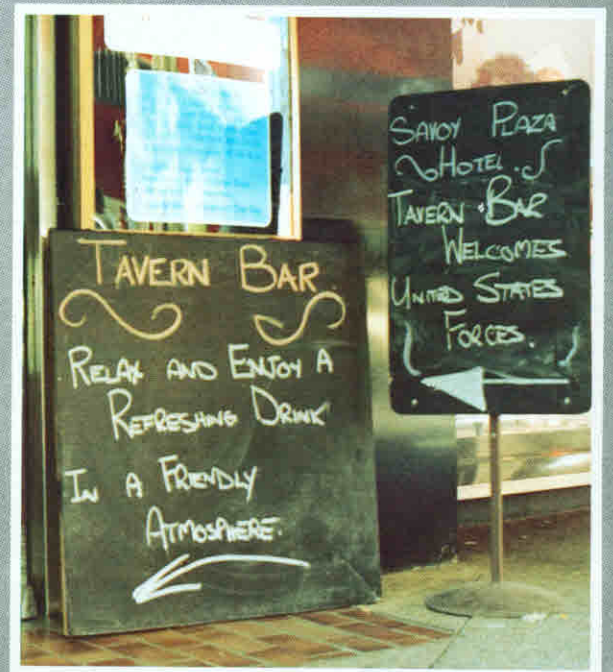 TAVERN BAR.
RELAX AND ENJOY A
REFRESHING DRINK
IN A FRIENDLY
ATMOSPHERE.
SAVOY PLAZA
HOTEL.
TAVERN BAR
WELCOMES
UNITED STATES
FORCES.